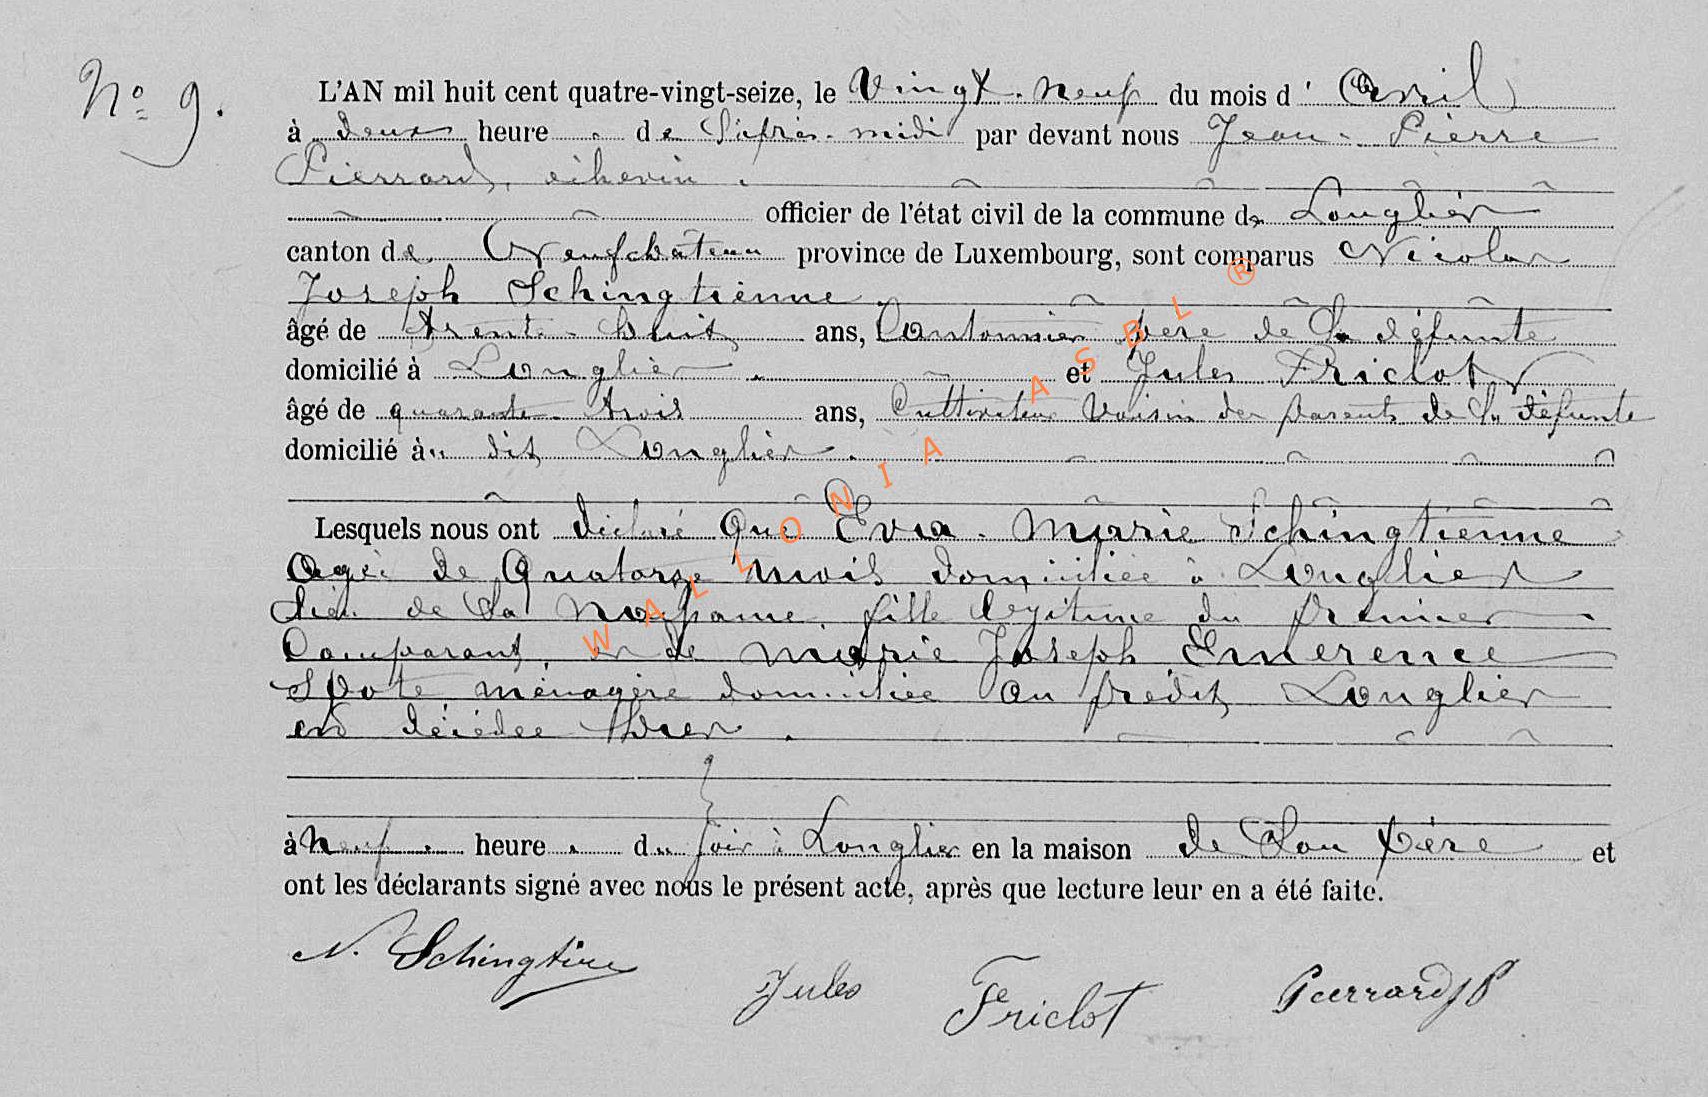 Nº 9.
L'AN mil huit cent quatre-vingt-seize, le Vingt-neuf du mois d' Avril
à deux heure de l'après-midi par devant nous Jean-Pierre
Pierrard, échevin
officier de l'état civil de la commune de Longlier
canton de Neufchâteau province de Luxembourg, sont comparus Nicolas
Joseph Schingtienne
âgé de trente-huit ans, Cantonnier père de la défunte
domicilié à Longlier et Jules Friclot
âgé de quarante-trois ans, Cultivateur Voisin des parents de la défunte
domicilié à dit Longlier.
Lesquels nous ont déclaré Que Eva-Marie Schingtienne
Agée de Quatorze mois domiciliée à Longlier
lieu de sa fille légitime du premier
Comparant, et de Marie Joseph Emerence
ménagère domiciliée au prédit Longlier
est décédée hier.
à neuf heure du soir à Longlier en la maison de son père et
ont les déclarants signé avec nous le présent acte, après que lecture leur en a été faite.
N. Schingtine Jules Friclot Pierrard JP
WALLONIA ASBL ®